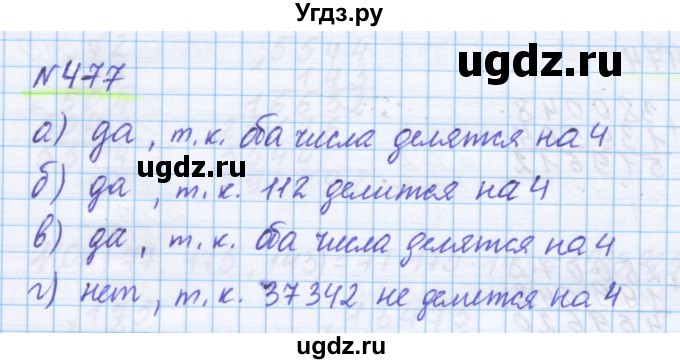 Угдз.ру
ugdz.ru
№477
а) да, т.к. оба числа делятся на 4
ugdz.ru
б) да, т.к. 112 делится на 4
в) да, т.к. оба числа делятся на 4
ugdz.ru
г) нет, т.к. 37342 не делится на 4
ugdz.ru ugdz.ru